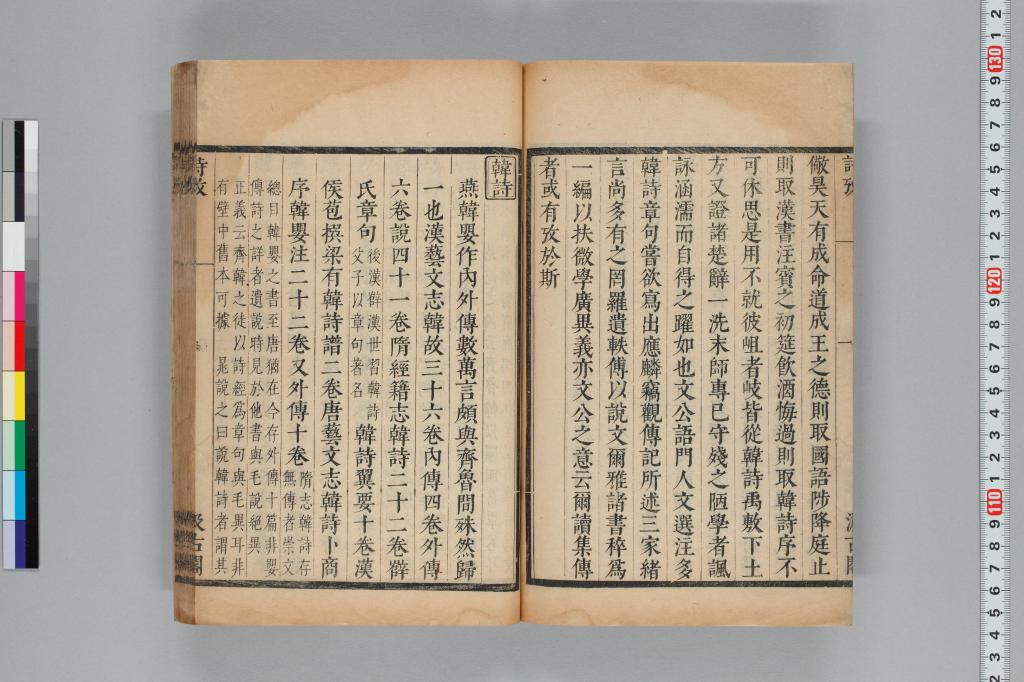 儆昊天有成命道成王之德則取國語陟降庭止
則取漢書注賓之初筵飲酒悔過則取韓詩序不
可休思是用不就彼岨者岐皆從韓詩禹敷下土
方又證諸楚辭一洗末師專己守殘之陋學者諷
詠涵濡而自得之躍如也文公語門人文選注多
韓詩章句嘗欲寫出應麟竊觀傳記所述三家緒
言尚多有之罔羅遺軼傅以說文爾雅諸書稡爲
一編以扶微學廣異義亦文公之意云爾讀集傳
者或有攷於斯
韓詩
燕韓嬰作內外傳數萬言頗與齊魯間殊然歸
一也漢藝文志韓故三十六卷內傳四卷外傳
六卷說四十一卷隋經籍志韓詩二十二卷薛
氏章句後漢薛漢世習韓詩父子以章句著名韓詩翼要十卷漢
侯苞撰梁有韓詩譜二卷唐藝文志韓詩卜商
序韓嬰注二十二卷又外傳十卷隋志韓詩存無傳者崇文
總目韓嬰之書至唐猶在今存外傳十篇非嬰
傳詩之詳者遺說時見於他書與毛說絕異
正義云齊韓之徒以詩經爲章句與毛異耳非
有壁中舊本可據 晁說之曰說韓詩者謂其
詩攷
汲古閣
130
120
110